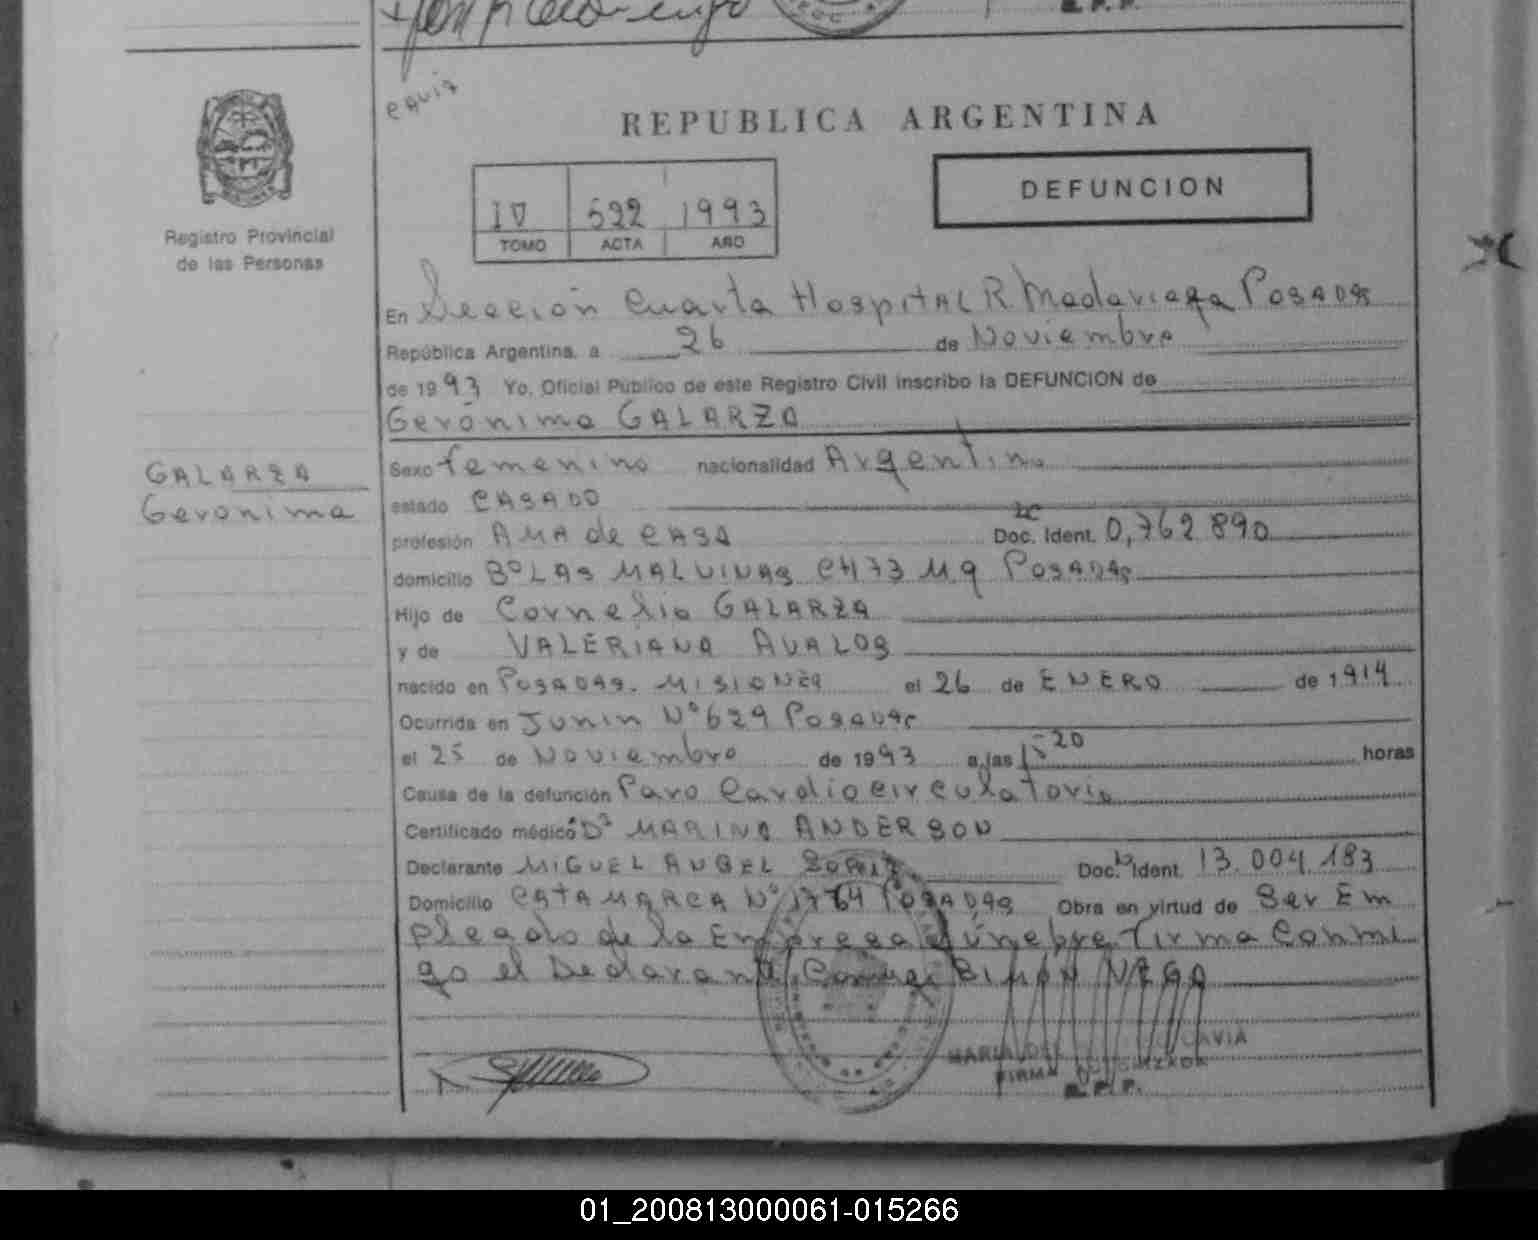 equiz
REPUBLICA ARGENTINA
DEFUNCION
IV 592 1993
TOMO ACTA AÑO
Registro Provincial
de las Personas
En Sección Cuarta Hospital R. Madariaga Posadas
República Argentina, a 26 de Noviembre
de 1993 Yo, Oficial Público de este Registro Civil inscribo la DEFUNCION de
Gerónima GALARZA
GALARZA
Geronima
Sexo femenino nacionalidad Argentina
estado CASADO
profesión AMA de CASA Doc. Ident. LC 0,762 890
domicilio Bº LAS MALVINAS CH 73 M 9 POSADAS
Hijo de Cornelio GALARZA
y de VALERIANA AVALOS
nacido en POSADAS. MISIONES el 26 de ENERO de 1914
Ocurrida en JUNIN Nº 629 POSADAS
el 25 de Noviembre de 1993 a las 15 20 horas
Causa de la defunción Paro Cardiocirculatorio
Certificado médico Dr MARINO ANDERSON
Declarante MIGUEL ANGEL Doc. Ident. 13.004.183
Domicilio CATAMARCA Nº 1764 POSADAS Obra en virtud de Ser Em
pleado de la Empresa Fúnebre. Firma Conmi
go el Declarante
FIRMA AUTORIZADA
R. P. P.
01_200813000061-015266